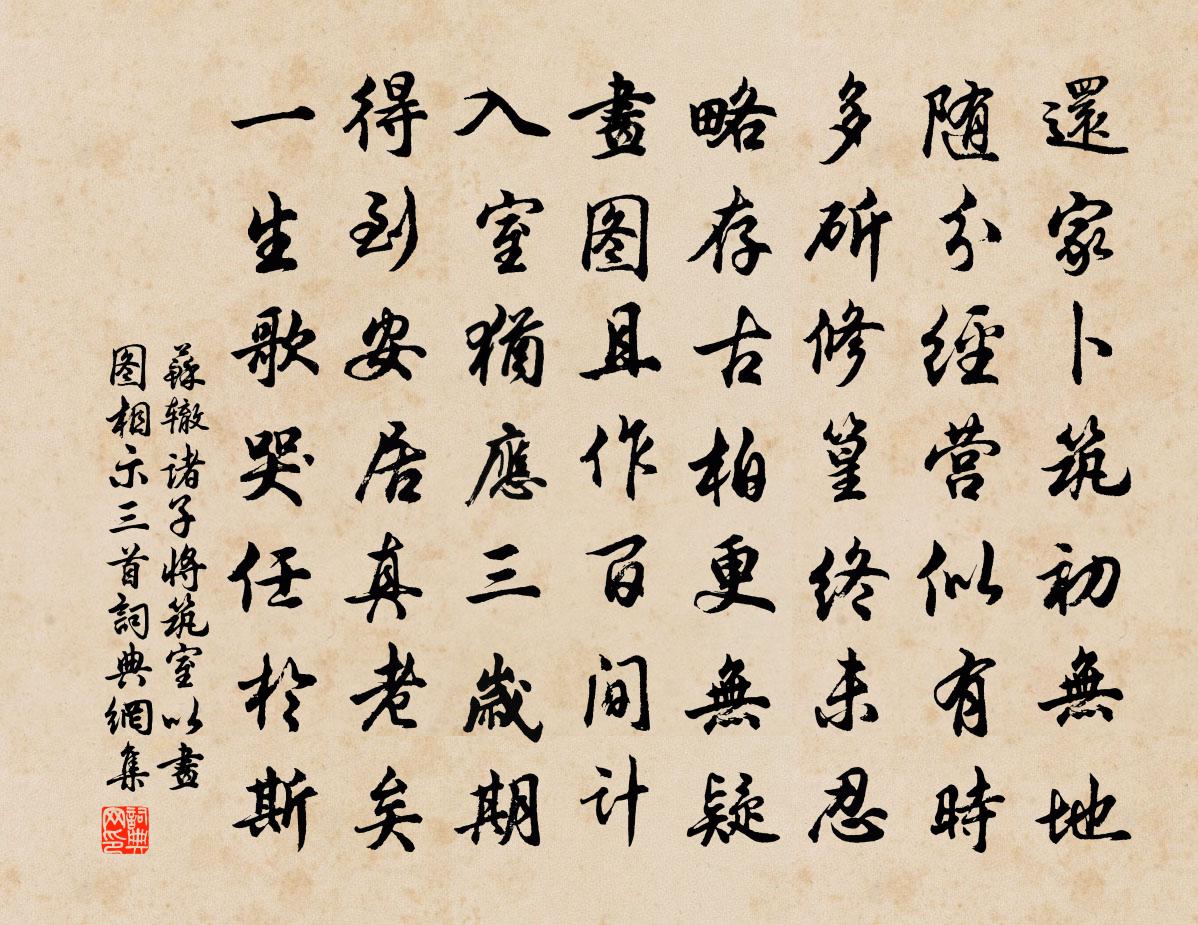 還家卜筑初無地
隨分經营似有時
多斫修篁終未忍
略存古柏更無疑
畫图且作百间计
入室猶應三歲期
得到安居真老矣
一生歌哭任於斯
蘇辙诸子將筑室以畫
图相示三首詞典網集
詞典网印